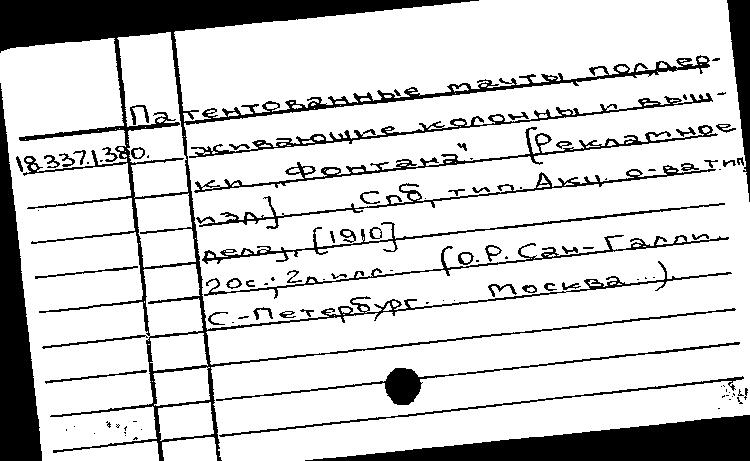 Патентованные мачты, поддер-
18.337.1.380. живающие колонны и выш-
ки „Фонтана". [Рекламное
изд.]. [Спб, тип. Акц. о-ва тип.
дела], [1910].
20с.; 2л.илл. (О.Р. Сан-Галли.
С.-Петербург... Москва...).